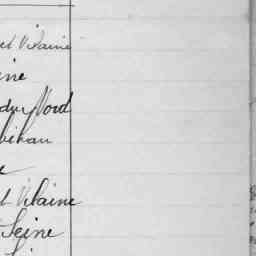 et Vilaine
ine
du Nord
bihan
e
et Vilaine
Seine